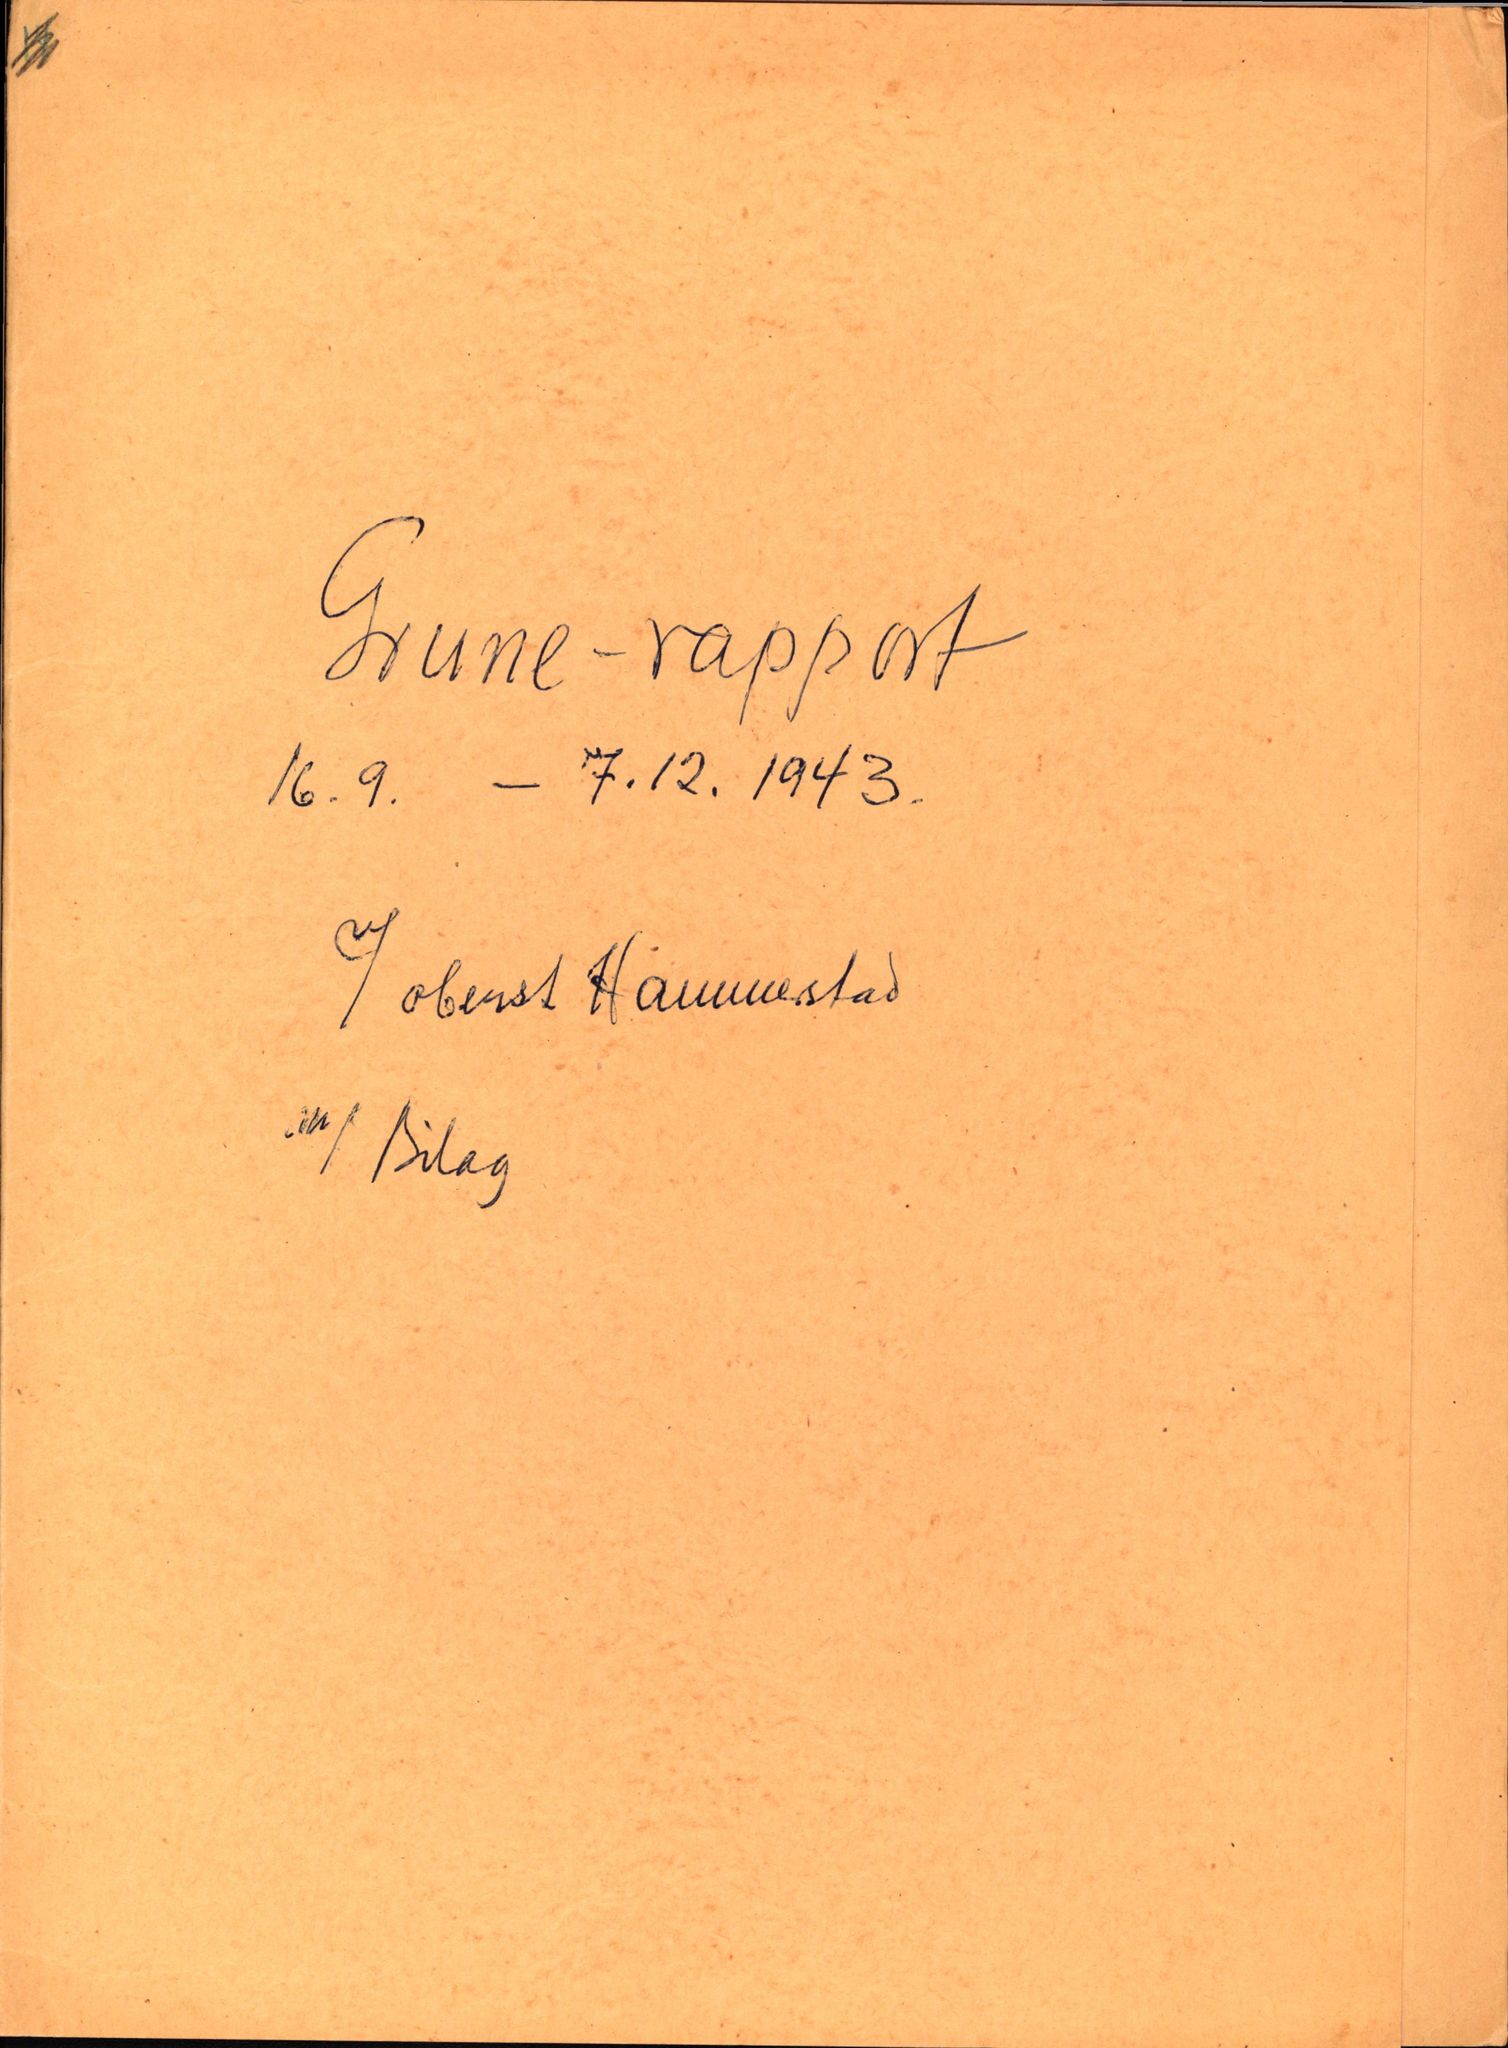 Grune-rapport
16.9. – 7.12.1943.
v/ oberst Hammerstad
m/ Bilag